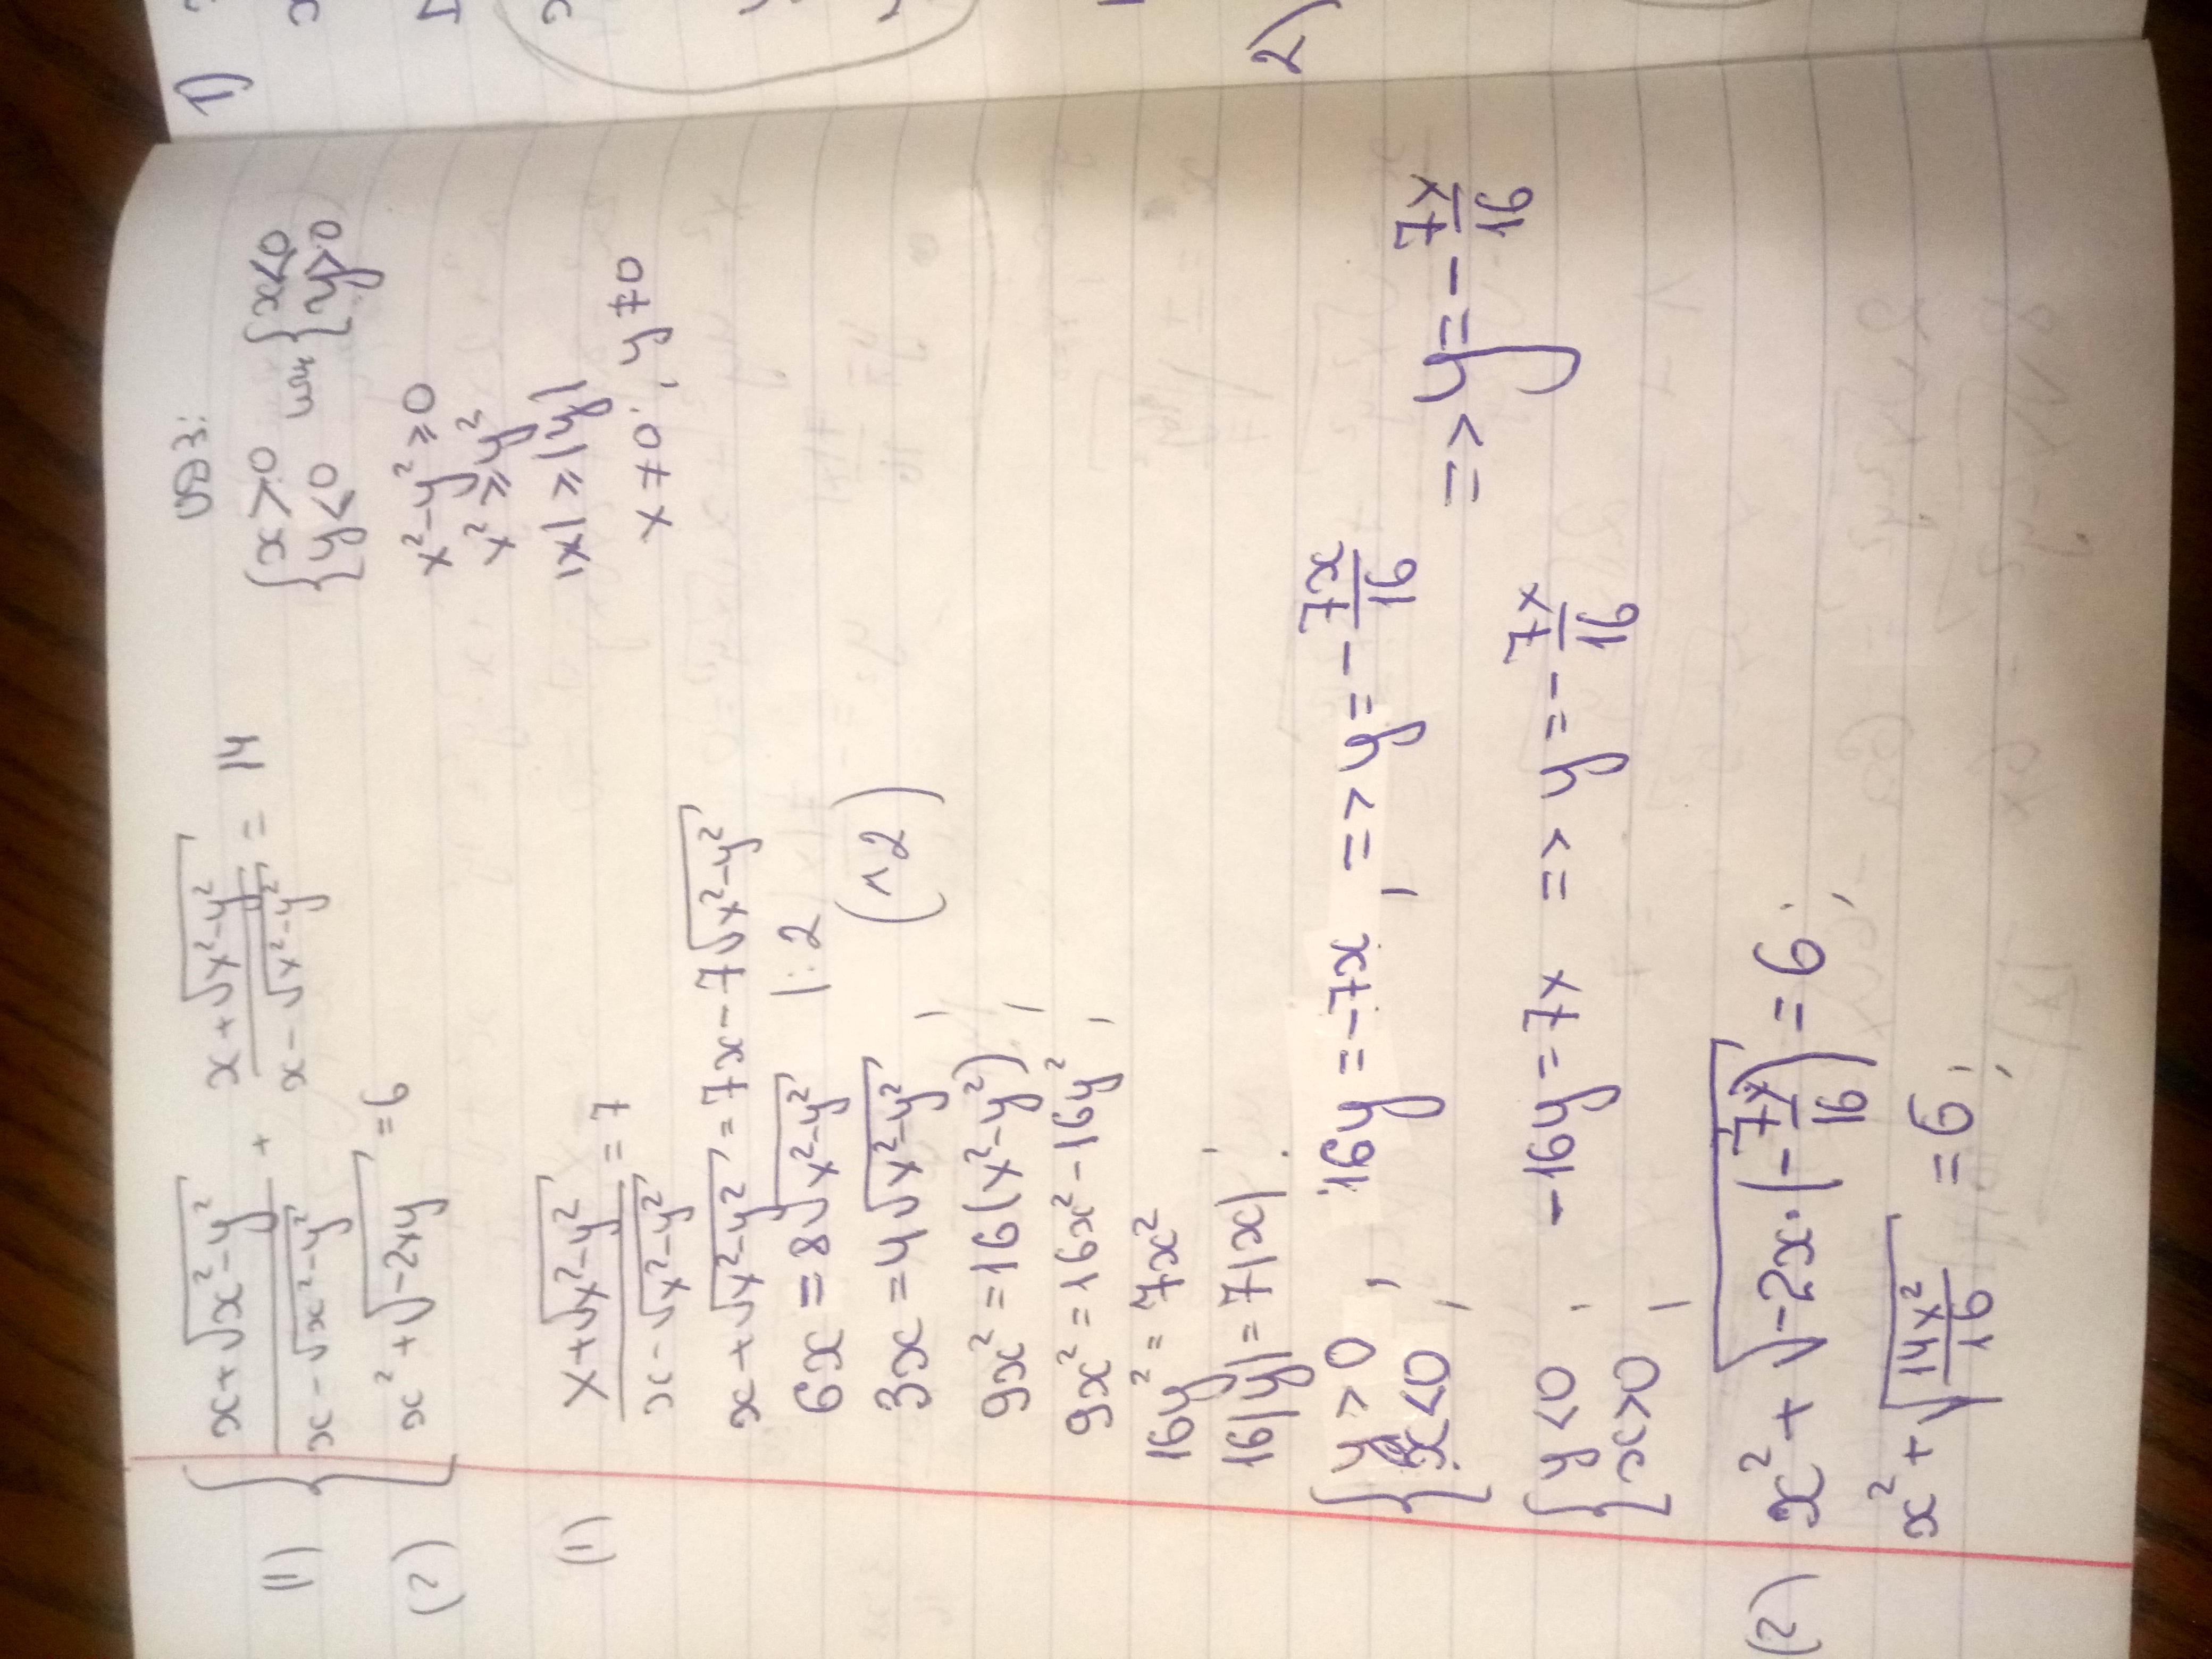 1)
2)
(1) { (x+√(x²-y²))/(x-√(x²-y²)) + (x+√(x²-y²))/(x-√(x²-y²)) = 14
(2) x²+√(-2xy) = 6
ОДЗ:
{ x>0 y<0 или { x<0 y>0
x²-y² ≥ 0
x² ≥ y²
|x| ≥ |y|
x ≠ 0; y ≠ 0
(1) (x+√(x²-y²))/(x-√(x²-y²)) = 7
x+√(x²-y²) = 7x-7√(x²-y²)
6x = 8√(x²-y²) |:2
3x = 4√(x²-y²); (^2)
9x² = 16(x²-y²);
9x² = 16x²-16y²;
16y² = 7x²
16|y| = 7|x|;
{ y>0 x<0, 16y = -7x, => y = -7x/16 => y = -7x/16
{ y<0 x>0; -16y = 7x => y = -7x/16
(2) x²+√(-2x·(-7x/16)) = 6;
x²+√(14x²/16) = 6;